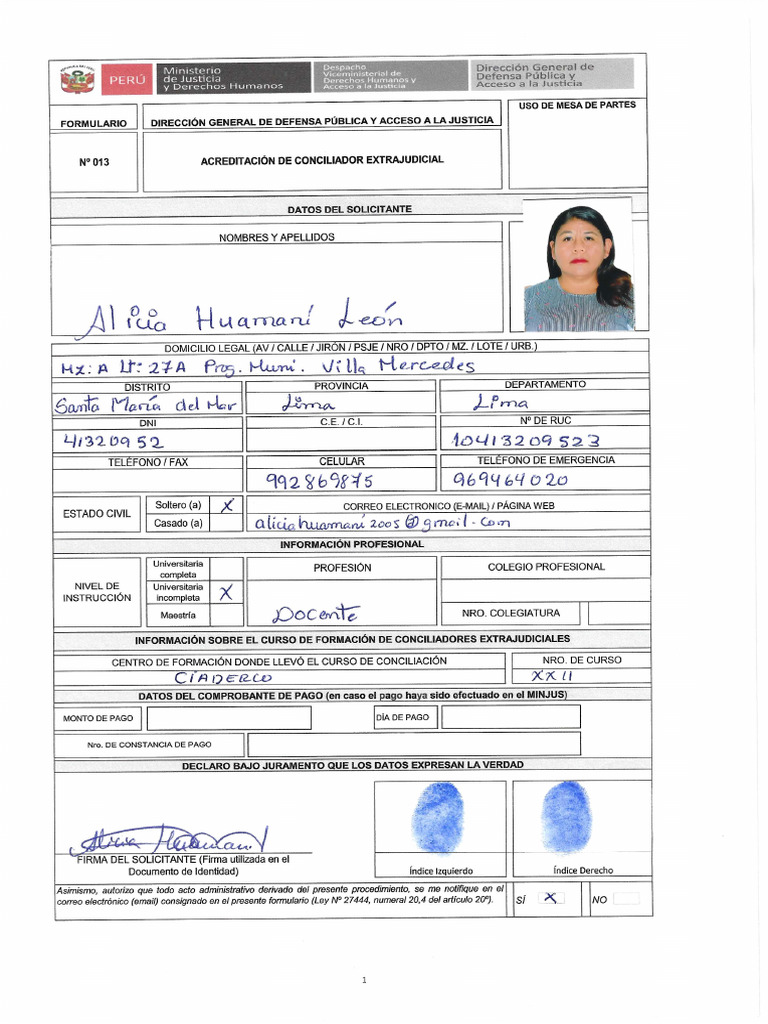 REPÚBLICA DEL PERÚ
PERÚ
Ministerio
de Justicia
y Derechos Humanos
Despacho
Viceministerial de
Derechos Humanos y
Acceso a la Justicia
Dirección General de
Defensa Pública y
Acceso a la Justicia
FORMULARIO
DIRECCIÓN GENERAL DE DEFENSA PÚBLICA Y ACCESO A LA JUSTICIA
USO DE MESA DE PARTES
Nº 013
ACREDITACIÓN DE CONCILIADOR EXTRAJUDICIAL
DATOS DEL SOLICITANTE
NOMBRES Y APELLIDOS
Alicia Huamaní León
DOMICILIO LEGAL (AV / CALLE / JIRÓN / PSJE / NRO / DPTO / MZ. / LOTE / URB.)
Mz: A Lt: 27A Prog. Muni. Villa Mercedes
DISTRITO PROVINCIA DEPARTAMENTO
Santa María del Mar Lima Lima
DNI C.E. / C.I. Nº DE RUC
41320952 10413209523
TELÉFONO / FAX CELULAR TELÉFONO DE EMERGENCIA
992869875 969464020
ESTADO CIVIL
Soltero (a) X
Casado (a)
CORREO ELECTRONICO (E-MAIL) / PÁGINA WEB
aliciahuamani2005@gmail.com
INFORMACIÓN PROFESIONAL
NIVEL DE
INSTRUCCIÓN
Universitaria
completa
Universitaria
incompleta X
Maestría
PROFESIÓN
Docente
COLEGIO PROFESIONAL
NRO. COLEGIATURA
INFORMACIÓN SOBRE EL CURSO DE FORMACIÓN DE CONCILIADORES EXTRAJUDICIALES
CENTRO DE FORMACIÓN DONDE LLEVÓ EL CURSO DE CONCILIACIÓN NRO. DE CURSO
CIADERCO XXII
DATOS DEL COMPROBANTE DE PAGO (en caso el pago haya sido efectuado en el MINJUS)
MONTO DE PAGO DÍA DE PAGO
Nro. DE CONSTANCIA DE PAGO
DECLARO BAJO JURAMENTO QUE LOS DATOS EXPRESAN LA VERDAD
Alicia Huamaní
FIRMA DEL SOLICITANTE (Firma utilizada en el
Documento de Identidad)
Índice Izquierdo Índice Derecho
Asimismo, autorizo que todo acto administrativo derivado del presente procedimiento, se me notifique en el
correo electrónico (email) consignado en el presente formulario (Ley Nº 27444, numeral 20,4 del artículo 20º).
SÍ X NO
1